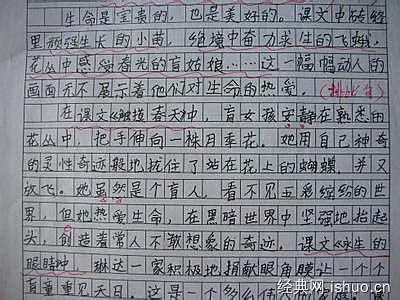 生命是宝贵的，也是美好的。课文中砖缝
里顽强生长的小苗，绝境中奋力求生的飞蛾，
花丛中感受春光的盲姑娘……这一幅幅动人的
画面无不展示着他们对生命的热爱。（排比句）
在课文《触摸春天》中，盲女孩安静在熟悉的
花丛中，把手伸向一株月季花。她用自己神奇
的灵性奇迹般地拢住了站在花上的蝴蝶，并又
放飞。她虽然是个盲人，看不见五彩缤纷的世
界，但她热爱生命，在黑暗世界中坚强地抬起
头，创造着常人不敢想象的奇迹。课文《永生的
眼睛》中，琳达一家积极地捐献眼角膜让一个个
盲童重见天日。这是一个多么
经典网-ishuo.cn